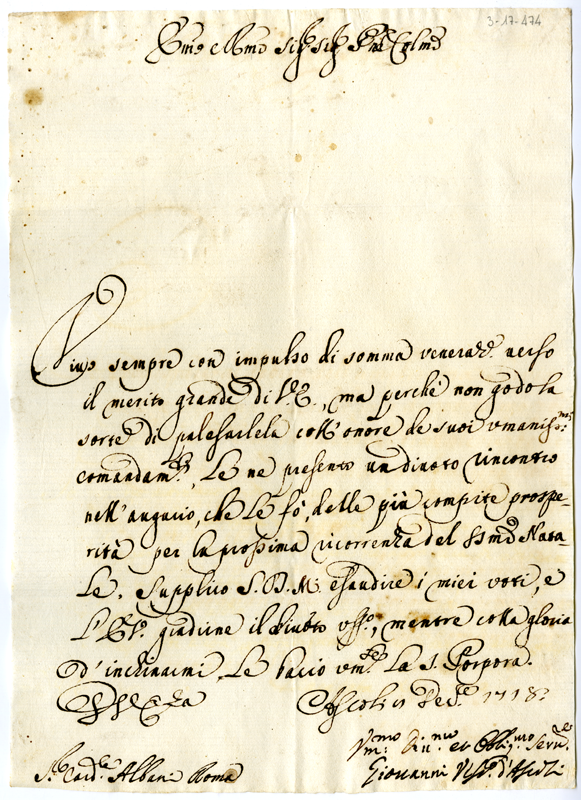 3-17-474
Em̃o e Rm̃o Sig.r Sig.r P̃rone Col̃mo
Viuo sempre con impulso di somma veneraz.e uerso
il merito grande di V.E., ma perche non godo la
sorte di palesarlela coll'onore de suoi vmaniss.mi
comandam.ti, Le ne presento un diuoto rincontro
nell'augurio, che Le fò, delle più compite prospe-
rità per la prossima ricorrenza del SS.mo Nata-
le. Supplico S.D.M. esaudire i miei voti, e
l'E.V. gradirne il diuoto vff.o, mentre colla gloria
d'inchinarmi, Le bacio vm.te La S. Porpora.
Ascoli Dec.e 1718
Vm.mo Diu.mo et Obblig.mo Seru.re
S.r Card.le Albani Roma
Giouanni Vesc.o d'Ascoli